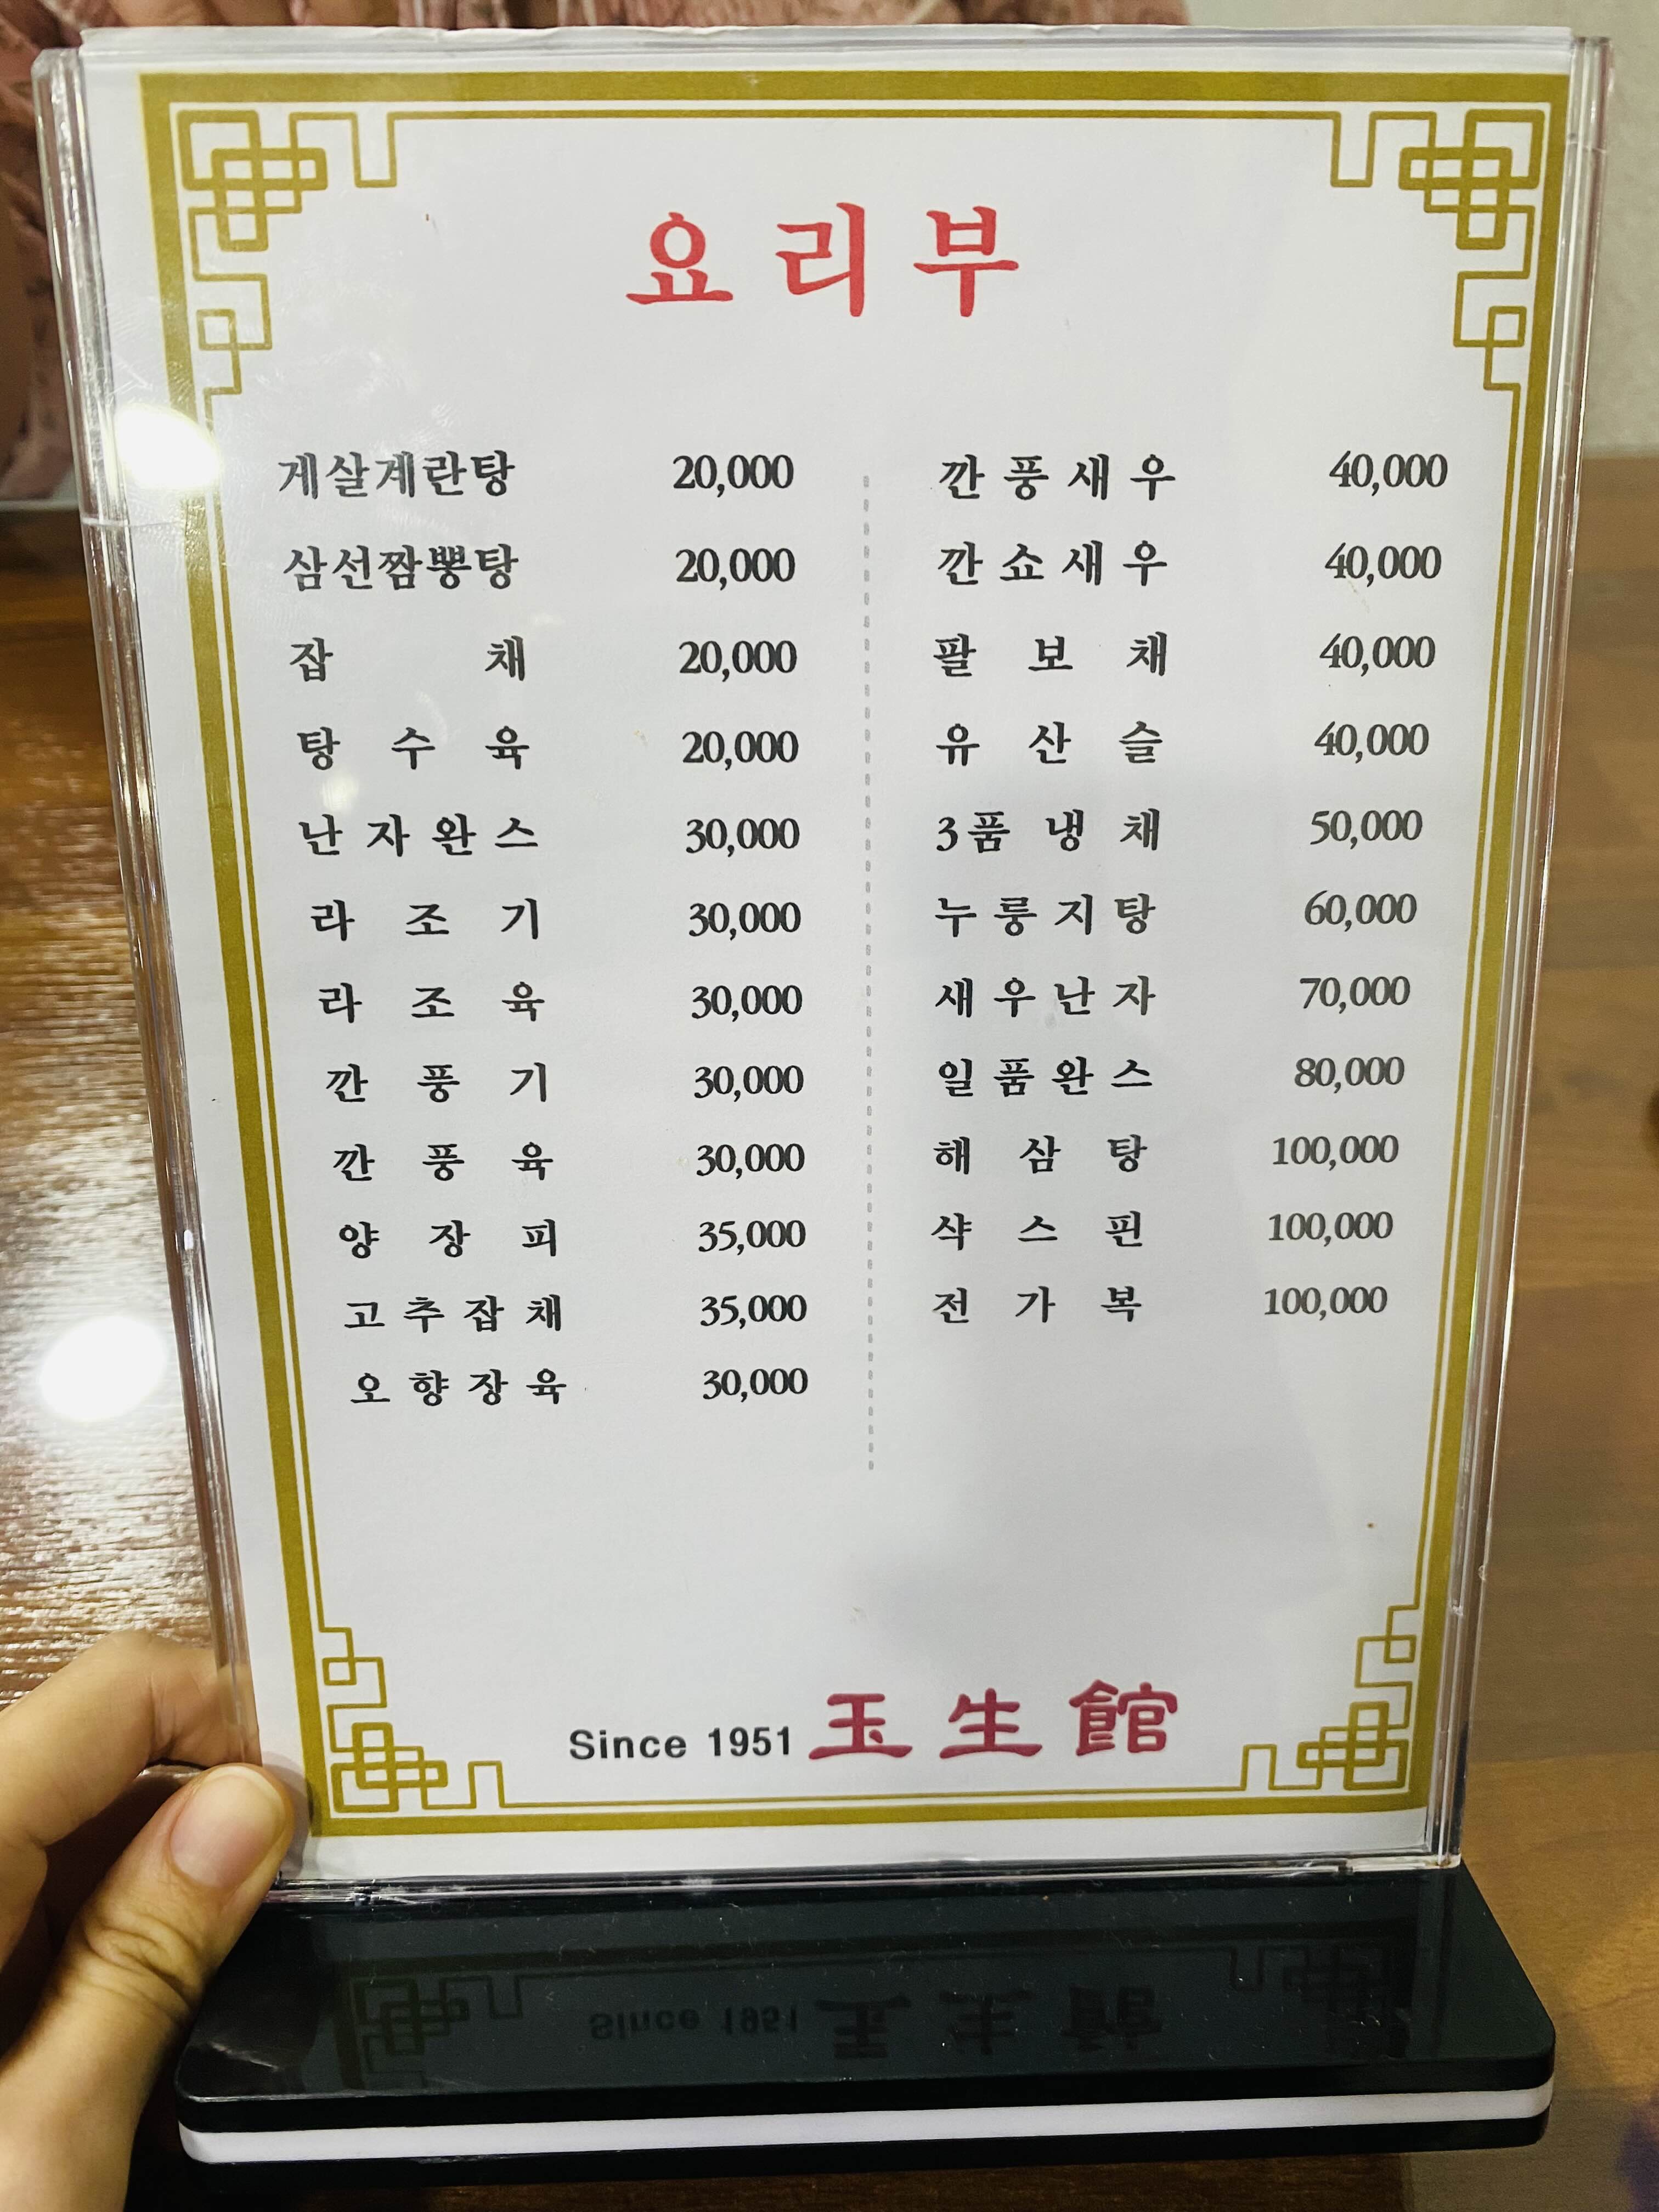 요리부
게살계란탕 20,000
삼선짬뽕탕 20,000
잡채 20,000
탕수육 20,000
난자완스 30,000
라조기 30,000
라조육 30,000
깐풍기 30,000
깐풍육 30,000
양장피 35,000
고추잡채 35,000
오향장육 30,000
깐풍새우 40,000
깐쇼새우 40,000
팔보채 40,000
유산슬 40,000
3품냉채 50,000
누룽지탕 60,000
새우난자 70,000
일품완스 80,000
해삼탕 100,000
샥스핀 100,000
전가복 100,000
Since 1951 玉生館